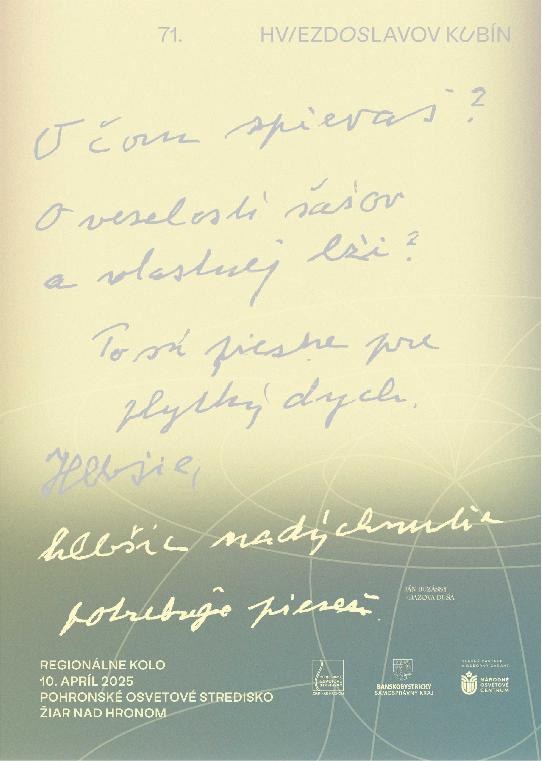 71. HVIEZDOSLAVOV KUBÍN
O čom spievaš?
O veselosti šašov
a vlastnej lži?
To sú piesne pre
plytký dych.
Hlbšie,
hlbšie nadýchnutie
potrebuje pieseň.
JÁN BUZÁSSY
DUŠA
REGIONÁLNE KOLO
10. APRÍL 2025
POHRONSKÉ OSVETOVÉ STREDISKO
ŽIAR NAD HRONOM
BANSKOBYSTRICKÝ
SAMOSPRÁVNY KRAJ
NÁRODNÉ
OSVETOVÉ
CENTRUM